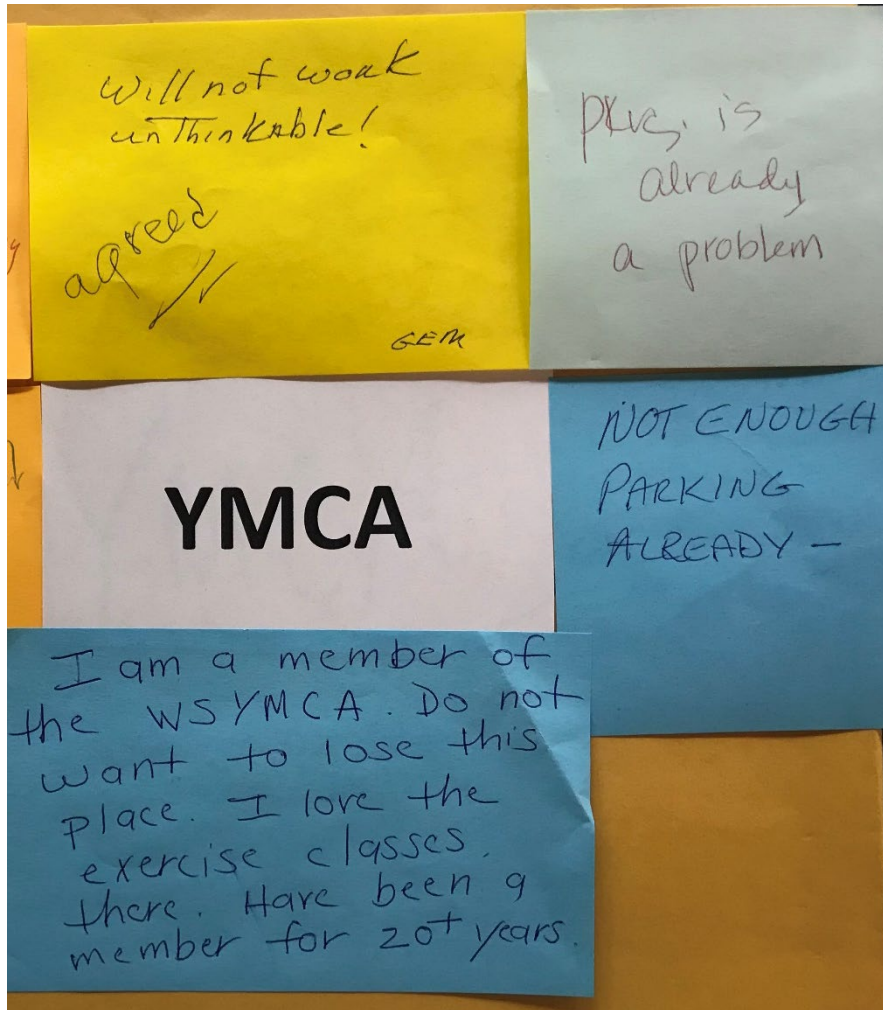 Will not work
unThinkable!
agreed
GEM
pkg. is
already
a problem
YMCA
NOT ENOUGH
PARKING
ALREADY —
I am a member of
the WSYMCA. Do not
want to lose this
place. I love the
exercise classes
there. Have been a
member for 20+ years.